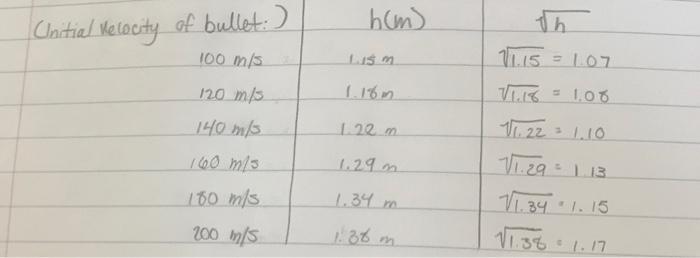 (Initial Velocity of bullet:) h(m) √h
100 m/s 1.15 m √1.15 = 1.07
120 m/s 1.18 m √1.18 = 1.08
140 m/s 1.22 m √1.22 = 1.10
160 m/s 1.29 m √1.29 = 1.13
180 m/s 1.34 m √1.34 = 1.15
200 m/s 1.38 m √1.38 = 1.17